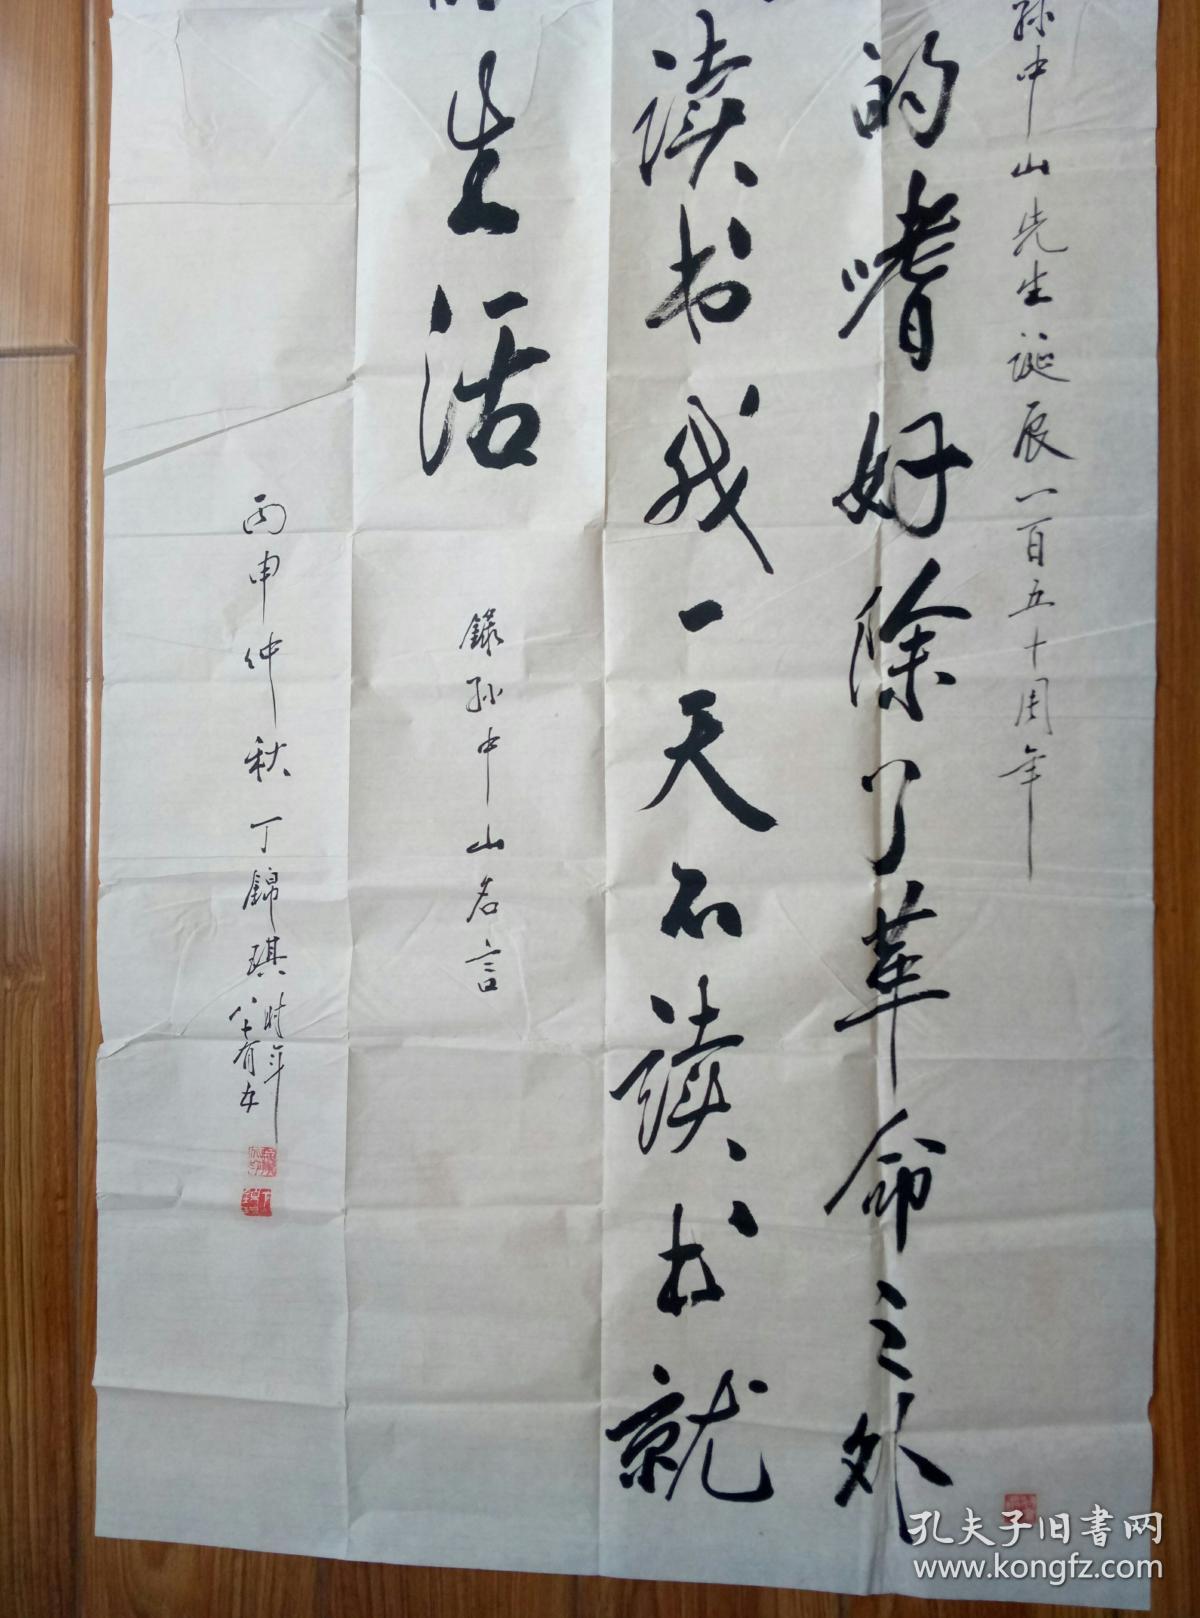 孙中山先生诞辰一百五十周年
的嗜好除了革命之外
读书我一天不读书就
生活
錄孙中山名言
丙申仲秋丁錦琪时年
八十有五
孔夫子旧书网
www.kongfz.com